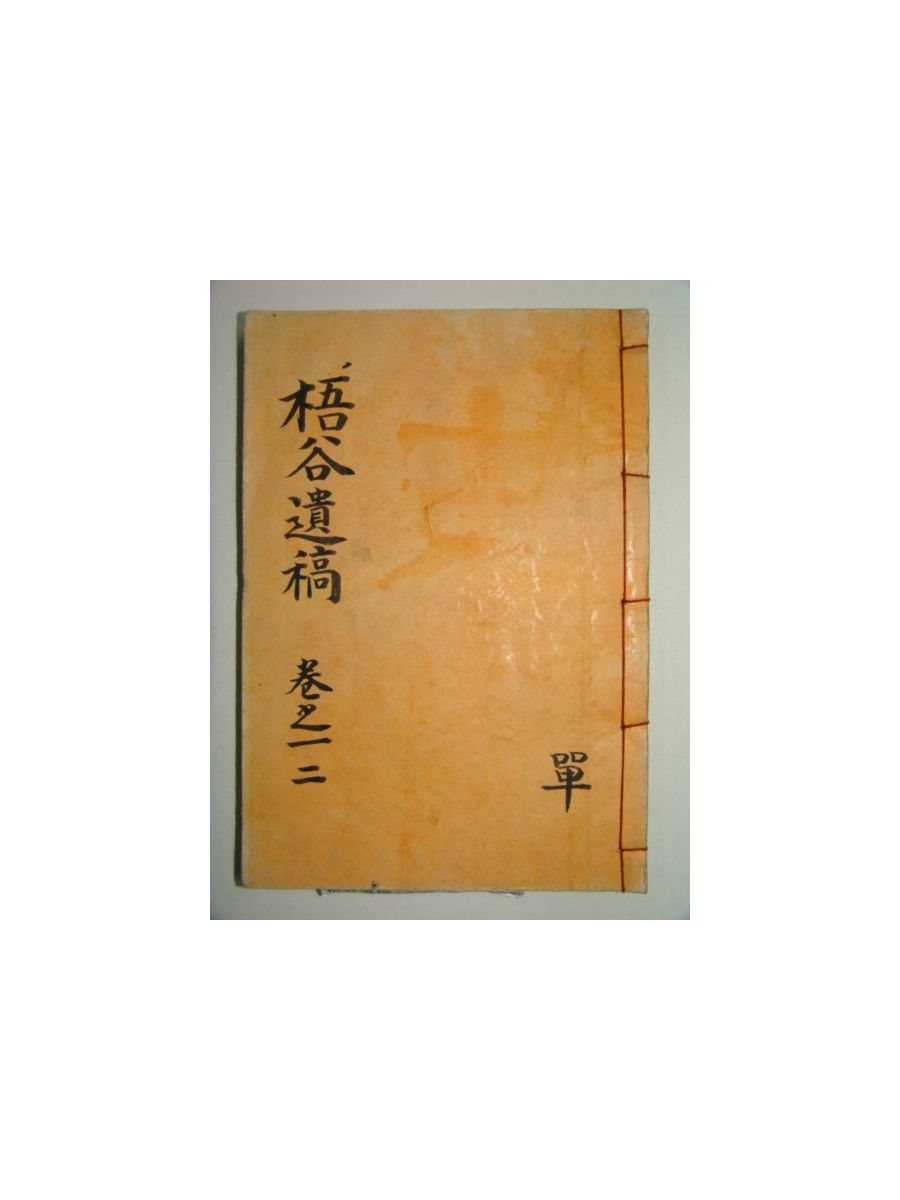 梧谷遺稿 卷之一 二
單